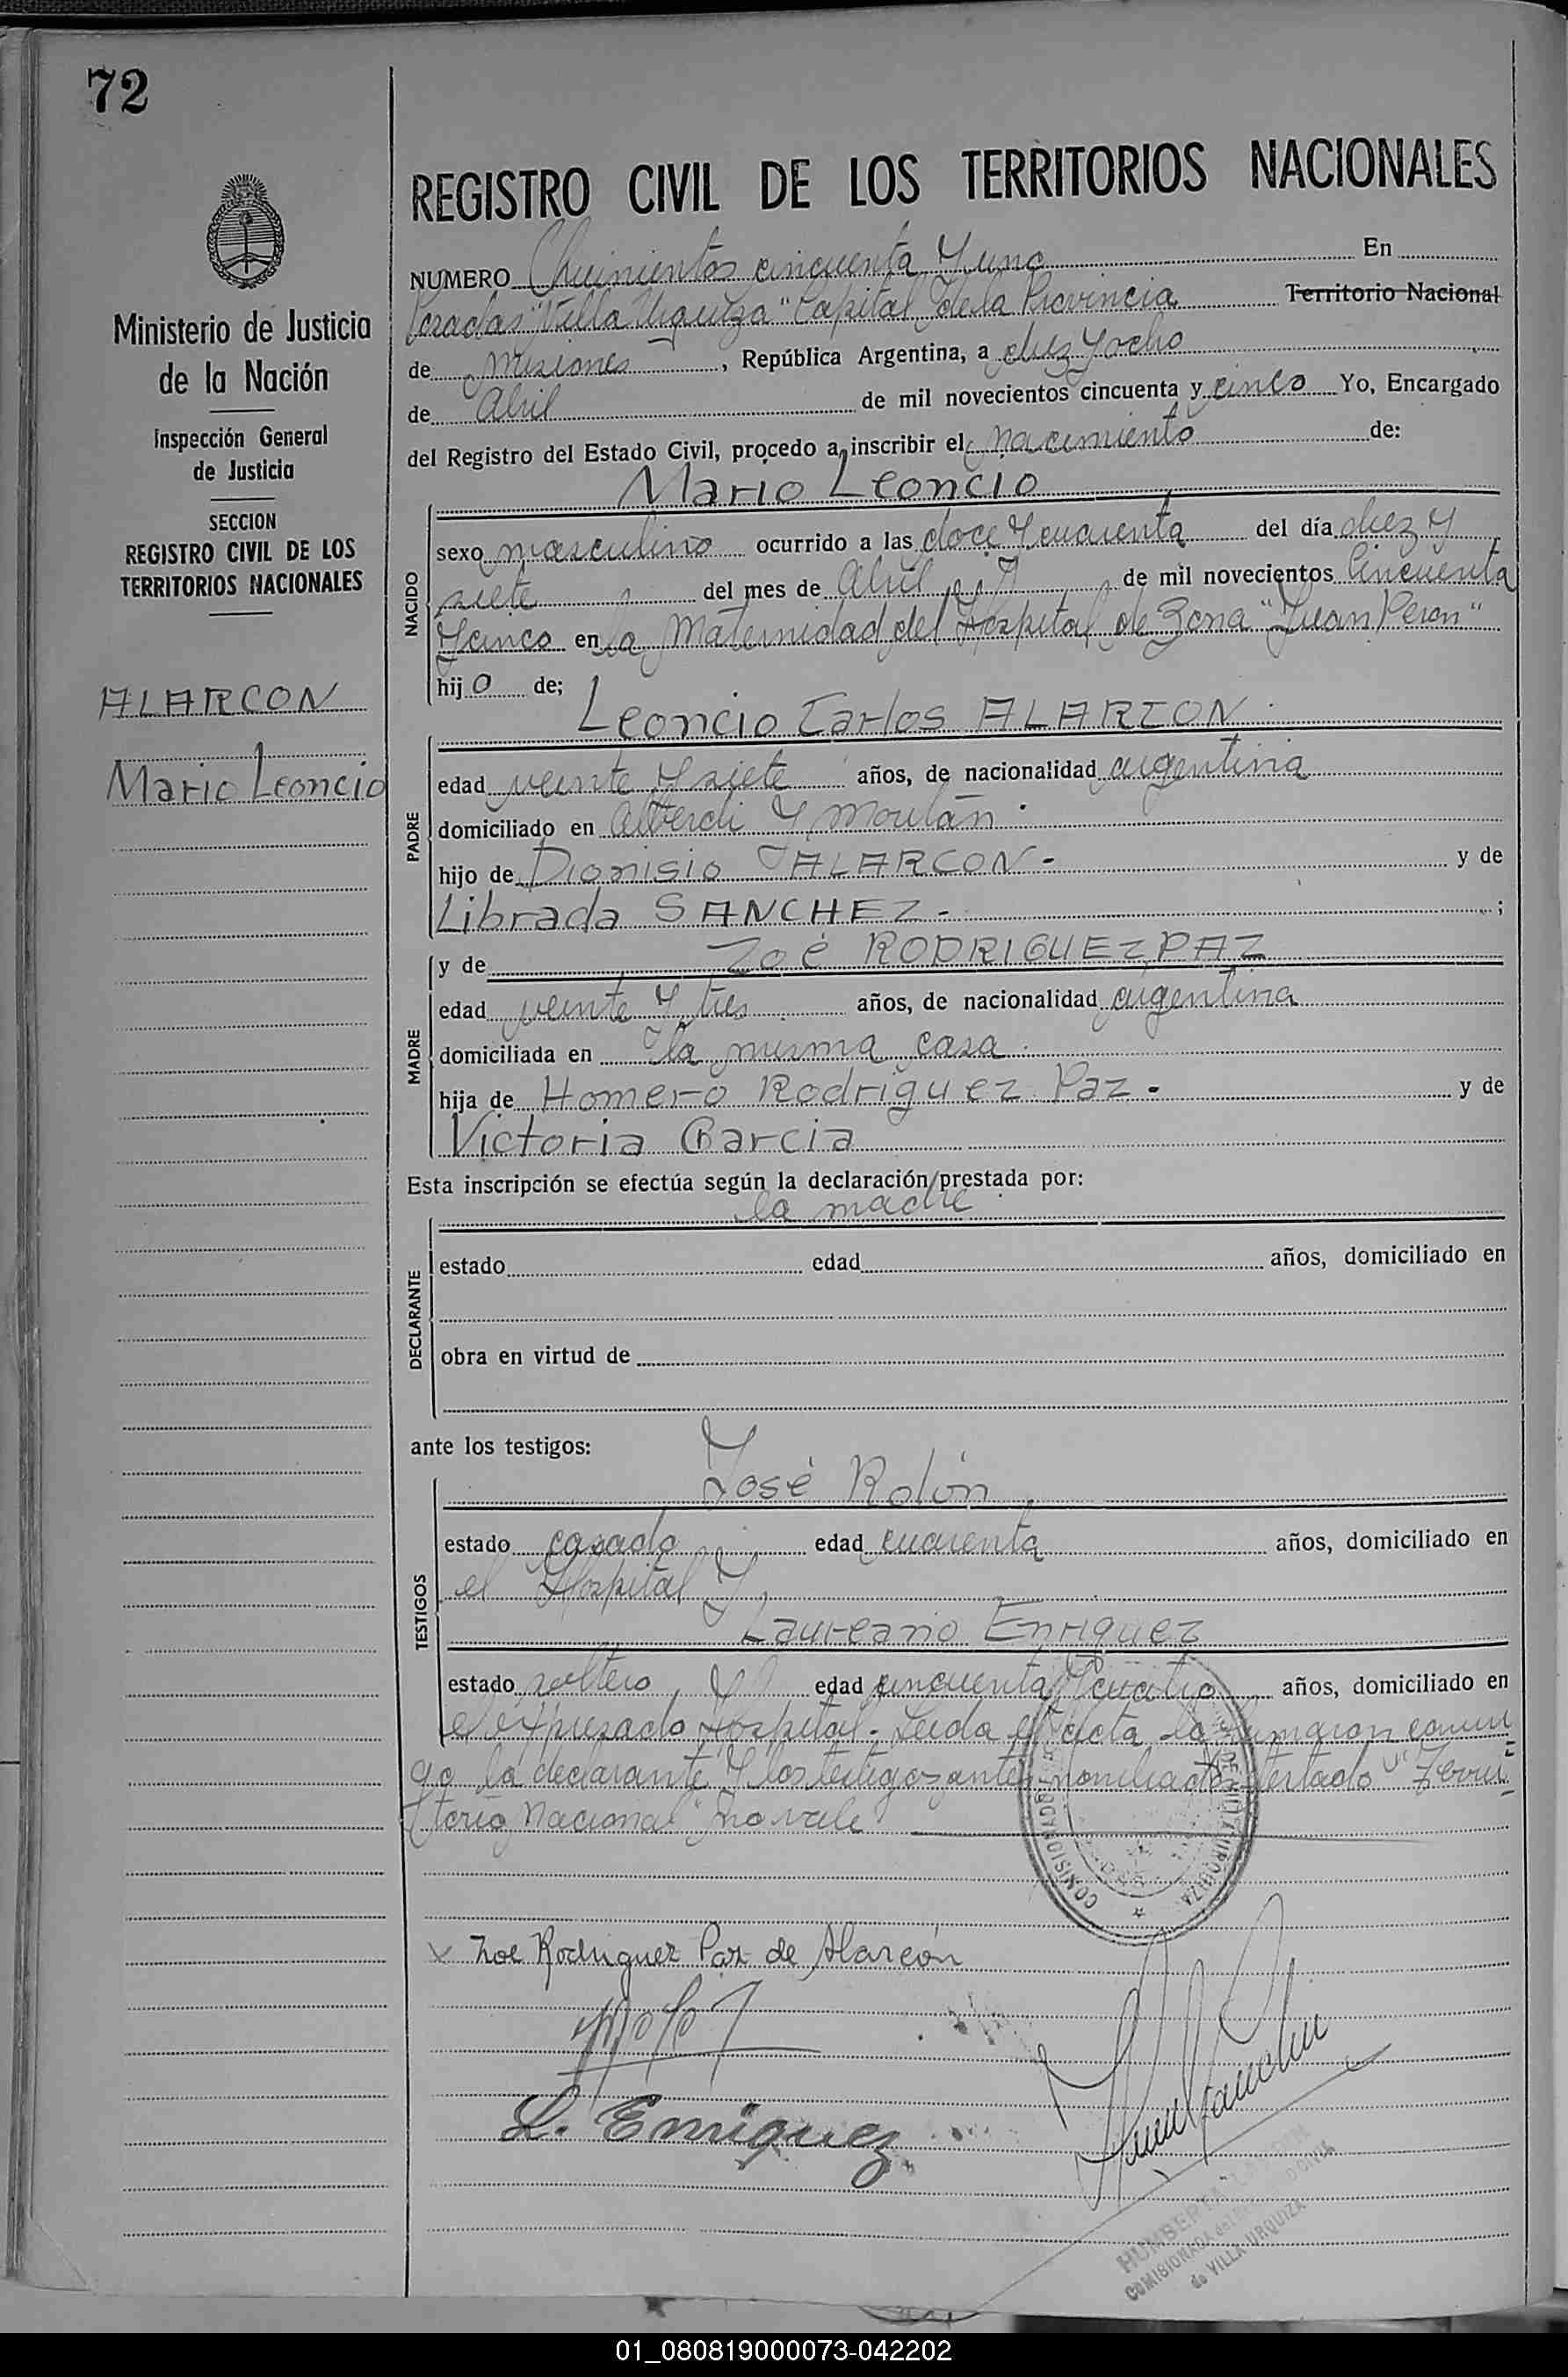 72
REGISTRO CIVIL DE LOS TERRITORIOS NACIONALES
Ministerio de Justicia
de la Nación
Inspección General
de Justicia
SECCION
REGISTRO CIVIL DE LOS
TERRITORIOS NACIONALES
ALARCON
Mario Leoncio
NUMERO Quinientos cincuenta y uno En
Posadas "Villa Urquiza" Capital de la Provincia Territorio Nacional
de Misiones, República Argentina, a diez y ocho
de Abril de mil novecientos cincuenta y cinco Yo, Encargado
del Registro del Estado Civil, procedo a inscribir el nacimiento de:
Mario Leoncio
NACIDO
sexo masculino ocurrido a las doce y cuarenta del día diez y
siete del mes de Abril de mil novecientos cincuenta
y cinco en la Maternidad del Hospital de Zona "Juan Peron"
hijo de;
Leoncio Carlos ALARCON
PADRE
edad veinte y siete años, de nacionalidad argentina
domiciliado en Alberdi y Moritán
hijo de Dionisio ALARCON - y de
Librada SANCHEZ - ;
y de Zoé RODRIGUEZ PAZ
MADRE
edad veinte y tres años, de nacionalidad argentina
domiciliada en la misma casa
hija de Homero Rodriguez Paz - y de
Victoria Garcia
Esta inscripción se efectúa según la declaración prestada por:
la madre
DECLARANTE
estado edad años, domiciliado en
obra en virtud de
ante los testigos:
José Rolón
TESTIGOS
estado casado edad cuarenta años, domiciliado en
el Hospital y
Laureano Enriquez
estado soltero edad cincuenta y cuatro años, domiciliado en
el expresado Hospital - Leida el acta la firmaron conmi
go la declarante y los testigos antes nombrados Testado "Terri
torio Nacional" no vale
COMISIONADO DE VILLA URQUIZA
x Zoe Rodriguez Paz de Alarcón
L. Enriquez
HUMBER
COMISIONADA del
de VILLA URQUIZA
01_080819000073-042202